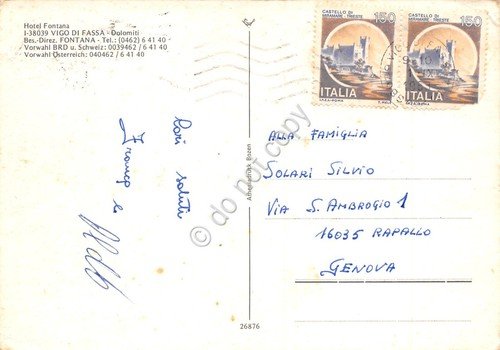 Hotel Fontana
I-38039 VIGO DI FASSA - Dolomiti
Bes.-Direz. FONTANA - Tel.: (0462) 6 41 40
Vorwahl BRD u. Schweiz: 0039462 / 6 41 40
Vorwahl Österreich: 040462 / 6 41 40
CASTELLO DI
MIRAMARE - TRIESTE
150
ITALIA
CASTELLO DI
MIRAMARE - TRIESTE
150
ITALIA
Cari saluti
Franco e
Athesiadruck Bozen
ALLA FAMIGLIA
SOLARI SILVIO
VIA S. AMBROGIO 1
16035 RAPALLO
GENOVA
26876
do not copy